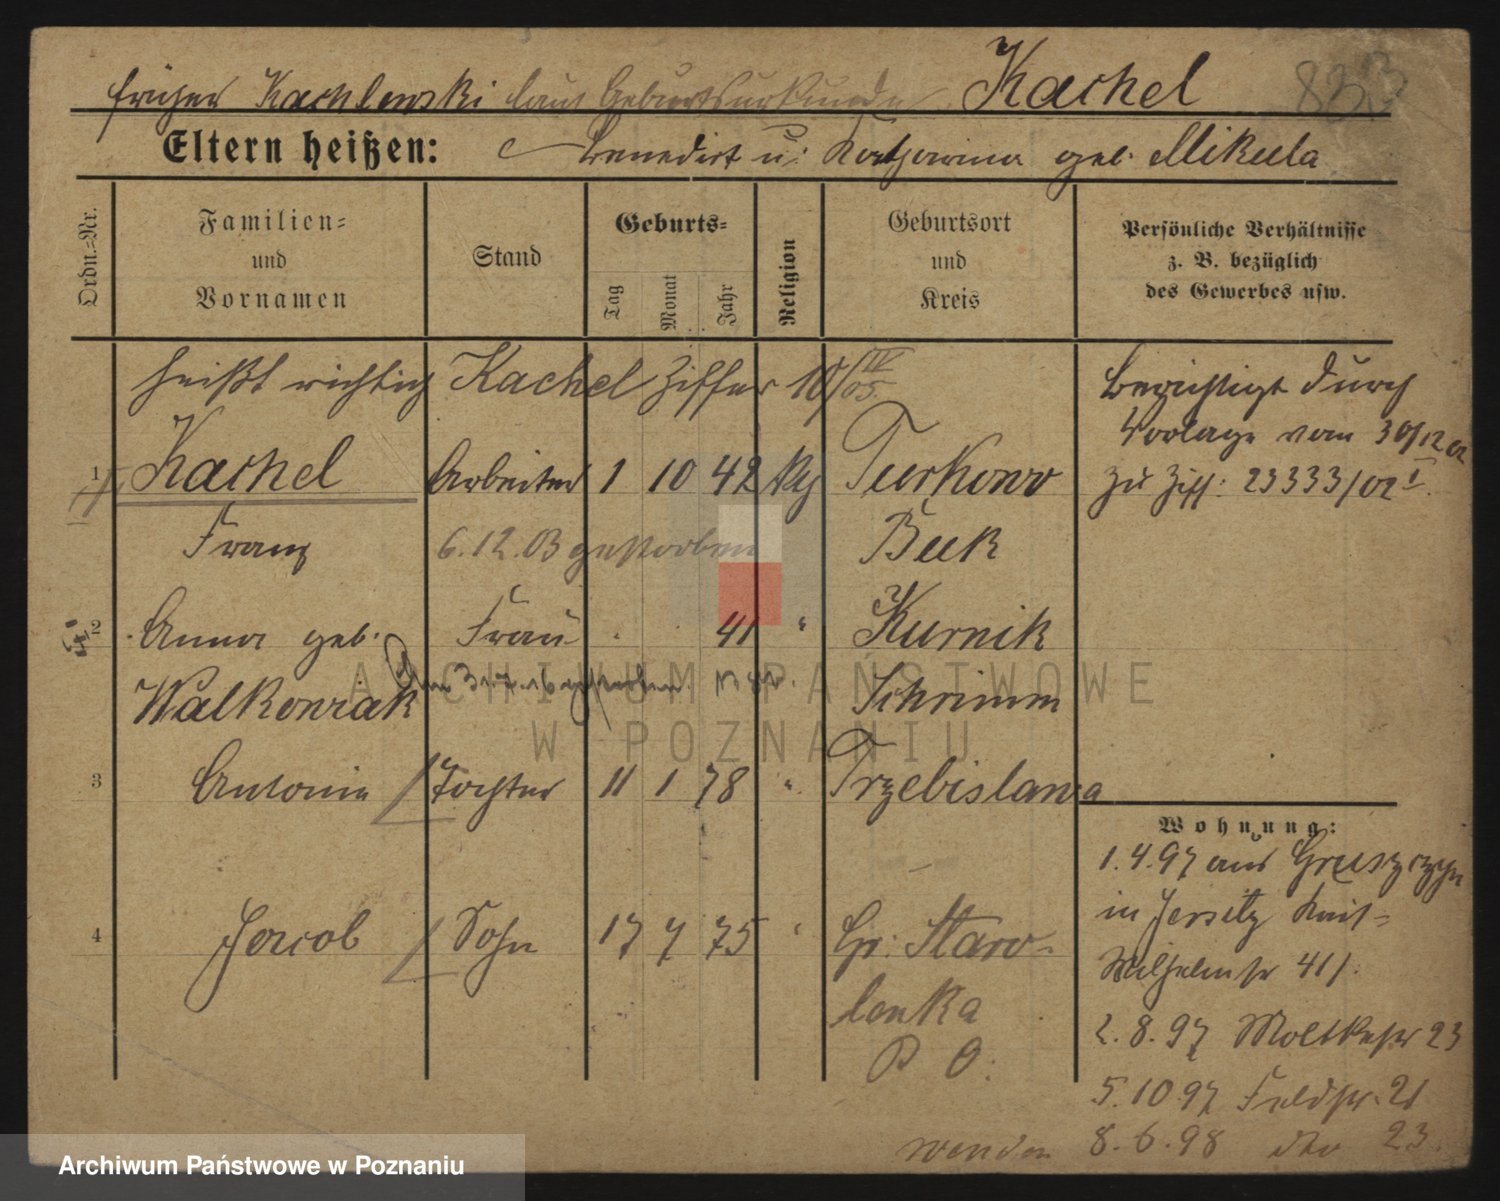 früher Kachlewski laut Geburtsurkunde Kachel 833
Eltern heißen: Benedict u. Katharina geb. Mikula
Ordn.-Nr.
Familien- und Vornamen
Stand
Geburts-
Tag
Monat
Jahr
Religion
Geburtsort und Kreis
Persönliche Verhältnisse
z. B. bezüglich
des Gewerbes usw.
heißt richtig Kachel Ziffer 10/IV 05.
Berichtigt durch
Vorlage vom 30/12 02
zu Ziff: 23333/02 I.
1 Kachel Arbeiter 1 10 42 Turkowo
Franz 6.12.03 gestorben Buk
2 Anna geb. Frau 41 " Kurnik
Walkowiak gestorben Schrimm
3 Antonie Tochter 11 1 78 " Trzebislawa
4 Jacob Sohn 17 7 75 " Gr: Staro-
lenka
P O.
Wohnung:
1.4.97 aus Gruszczyn
in Jersitz Kais-
Wilhelmstr 41/.
2.8.97 Moltkestr 23
5.10.97 Feldstr. 21
8.6.98 dto 23.
wenden
ARCHIWUM PAŃSTWOWE
W POZNANIU
Archiwum Państwowe w Poznaniu